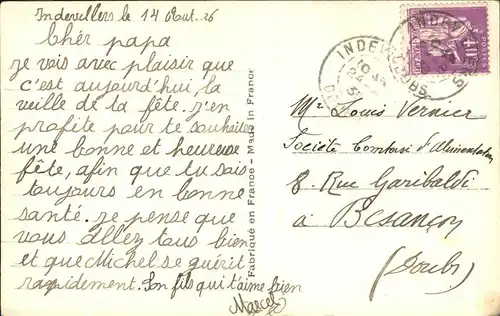 Indevillers le 14 Aout. 36
Chér papa
je vois avec plaisir que
c'est aujourd'hui la
veille de ta fête. J'en
profite pour te souhaiter
une bonne et heureuse
fête, afin que tu sois
toujours en bonne
santé. Je pense que
vous allez tous bien
et que Michel se guérit
rapidement. Ton fils qui t'aime bien
Marcel
Fabriqué en France - Made in France
INDEVILLERS
DOUBS
INDEVILLERS
DOUBS
40
Mr Louis Vernier
Société Comtoise d'Alimentation
8. Rue Garibaldi
à Besançon
(Doubs)